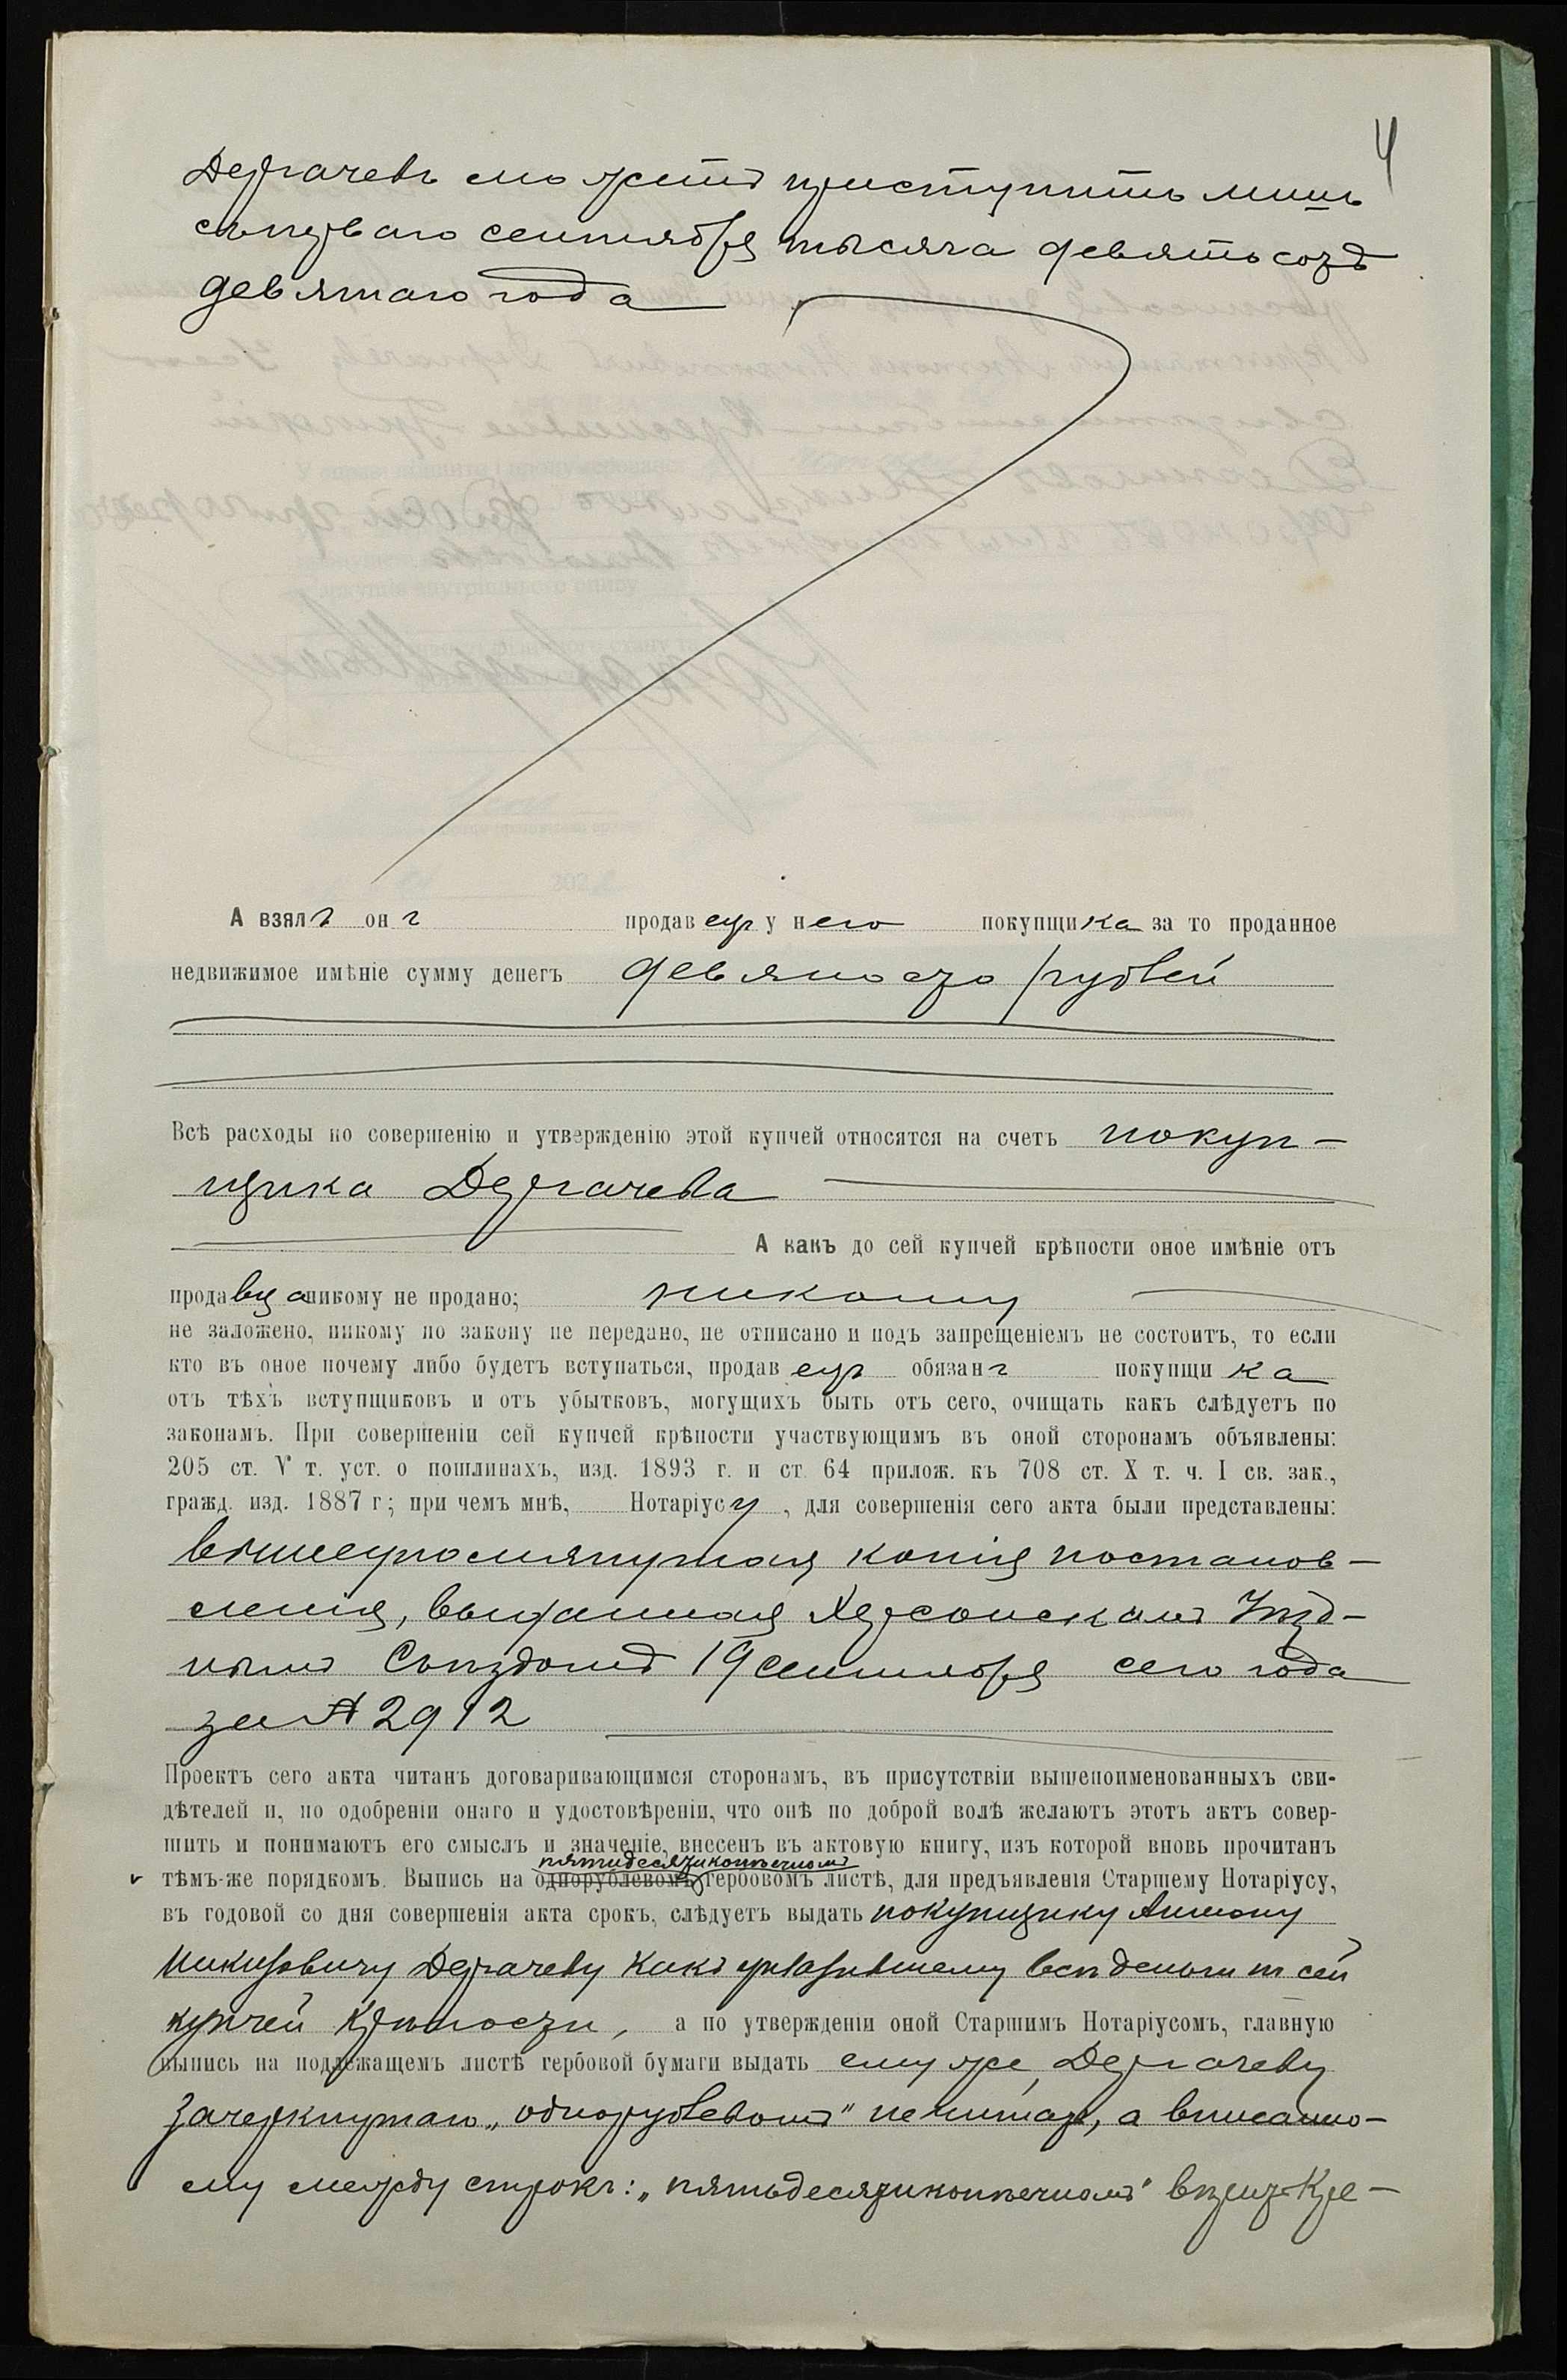 4
Дергачевъ можетъ приступить лишь
съ перваго сентября тысяча девятьсотъ
девятаго года
А взялъ онъ продавецъ у него покупщика за то проданное
недвижимое имѣніе сумму денегъ девяносто рублей
Всѣ расходы по совершенію и утвержденію этой купчей относятся на счетъ покуп-
щика Дергачева
А какъ до сей купчей крѣпости оное имѣніе отъ
продавца никому не продано; никому
не заложено, никому по закону не передано, не отписано и подъ запрещеніемъ не состоитъ, то если
кто въ оное почему либо будетъ вступаться, продавецъ обязанъ покупщика
отъ тѣхъ вступщиковъ и отъ убытковъ, могущихъ быть отъ сего, очищать какъ слѣдуетъ по
законамъ. При совершеніи сей купчей крѣпости участвующимъ въ оной сторонамъ объявлены:
205 ст. V т. уст. о пошлинахъ, изд. 1893 г. и ст. 64 прилож. къ 708 ст. X т. ч. I св. зак.,
гражд. изд. 1887 г; при чемъ мнѣ, Нотаріусу, для совершенія сего акта были представлены:
вышеупомянутая копія постанов-
ленія, выданная Херсонскимъ Уѣзд-
нымъ Съѣздомъ 19 сентября сего года
за № 2912
Проектъ сего акта читанъ договаривающимся сторонамъ, въ присутствіи вышепоименованныхъ сви-
дѣтелей и, по одобреніи онаго и удостовѣреніи, что онѣ по доброй волѣ желаютъ этотъ актъ совер-
шить и понимаютъ его смыслъ и значеніе, внесенъ въ актовую книгу, изъ которой вновь прочитанъ
пятидесятикопѣечномъ
тѣмъ-же порядкомъ. Выпись на однорублевомъ гербовомъ листѣ, для предъявленія Старшему Нотаріусу,
въ годовой со дня совершенія акта срокъ, слѣдуетъ выдать покупщику Антону
Никитовичу Дергачеву какъ уплатившему всѣ деньги по сей
купчей крѣпости, а по утвержденіи оной Старшимъ Нотаріусомъ, главную
выпись на подлежащемъ листѣ гербовой бумаги выдать ему же Дергачеву
Зачеркнутаго „однорублевомъ" не читать, а вписанно-
му между строкъ: „пятьдесятикопѣечномъ" вѣрить Кре-